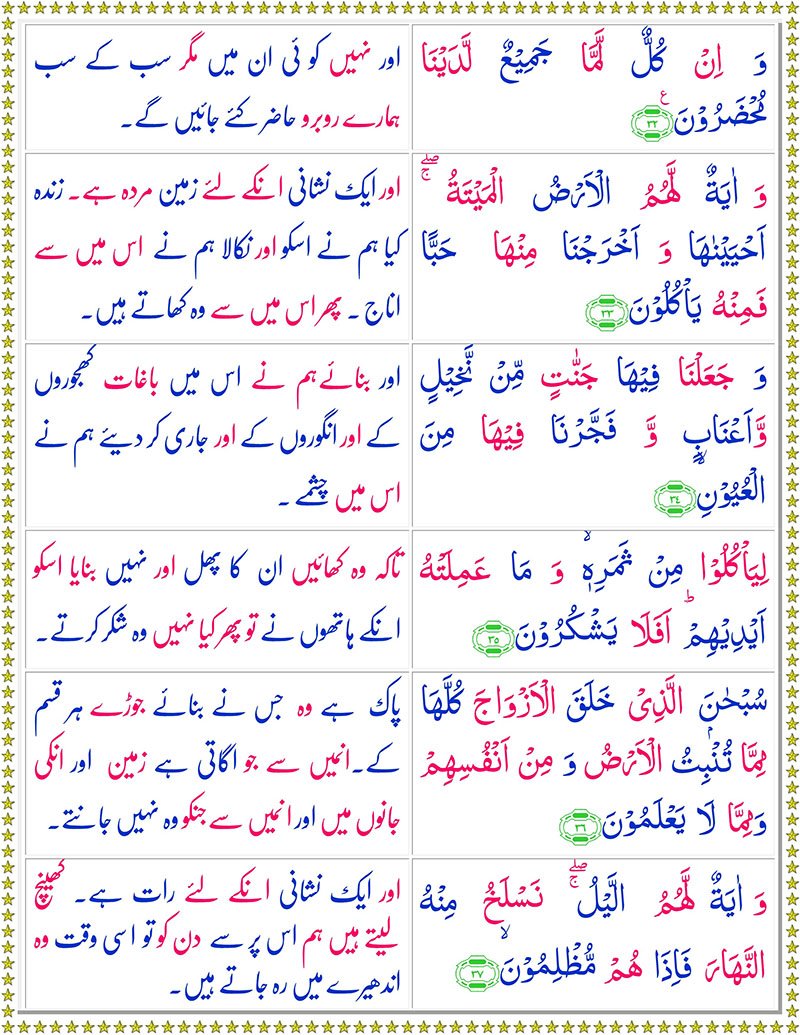 وَ اِنْ كُلٌّ لَّمَّا جَمِيْعٌ لَّدَيْنَا
مُحْضَرُوْنَ ع ﴿۳۲﴾
اور نہیں کوئی ان میں مگر سب کے سب
ہمارے روبرو حاضر کئے جائیں گے۔
وَ اٰيَةٌ لَّهُمُ الْاَرْضُ الْمَيْتَةُ ۖۚ
اَحْيَيْنٰهَا وَ اَخْرَجْنَا مِنْهَا حَبًّا
فَمِنْهُ يَاْكُلُوْنَ ﴿۳۳﴾
اور ایک نشانی انکے لئے زمین مردہ ہے۔ زندہ
کیا ہم نے اسکو اور نکالا ہم نے اس میں سے
اناج۔ پھر اس میں سے وہ کھاتے ہیں۔
وَ جَعَلْنَا فِيْهَا جَنّٰتٍ مِّنْ نَّخِيْلٍ
وَّاَعْنَابٍ وَّ فَجَّرْنَا فِيْهَا مِنَ
الْعُيُوْنِۙ ﴿۳۴﴾
اور بنائے ہم نے اس میں باغات کھجوروں
کے اور انگوروں کے اور جاری کر دیئے ہم نے
اس میں چشمے۔
لِيَاْكُلُوْا مِنْ ثَمَرِهٖۙ وَ مَا عَمِلَتْهُ
اَيْدِيْهِمْؕ اَفَلَا يَشْكُرُوْنَ ﴿۳۵﴾
تاکہ وہ کھائیں ان کا پھل اور نہیں بنایا اسکو
انکے ہاتھوں نے تو پھر کیا نہیں وہ شکر کرتے۔
سُبْحٰنَ الَّذِىْ خَلَقَ الْاَزْوَاجَ كُلَّهَا
مِمَّا تُنْۢبِتُ الْاَرْضُ وَ مِنْ اَنْفُسِهِمْ
وَمِمَّا لَا يَعْلَمُوْنَ ﴿۳۶﴾
پاک ہے وہ جس نے بنائے جوڑے ہر قسم
کے۔ انمیں سے جو اگاتی ہے زمین اور انکی
جانوں میں اور انمیں سے جنکو وہ نہیں جانتے۔
وَ اٰيَةٌ لَّهُمُ الَّيْلُ ۖۚ نَسْلَخُ مِنْهُ
النَّهَارَ فَاِذَا هُمْ مُّظْلِمُوْنَۙ ﴿۳۷﴾
اور ایک نشانی انکے لئے رات ہے۔ کھینچ
لیتے ہیں ہم اس پر سے دن کو تو اسی وقت وہ
اندھیرے میں رہ جاتے ہیں۔